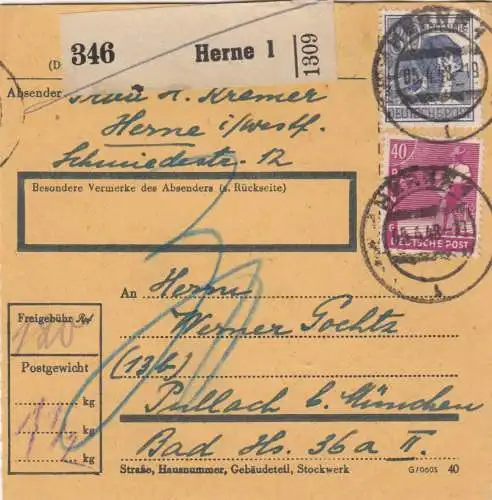 346 Herne 1 1309
Absender Frau H. Kremer
Herne i/Westf.
Schmiedestr. 12
DEUTSCHE POST
Besondere Vermerke des Absenders (s. Rückseite)
40
DEUTSCHE POST
HERNE 1
An Herrn
Freigebühr Rpf
Werner Gochtz
120
(13b)
Postgewicht
kg
Pullach b. München
kg
Bad Hs. 36a II.
kg
Straße, Hausnummer, Gebäudeteil, Stockwerk G/0605 40